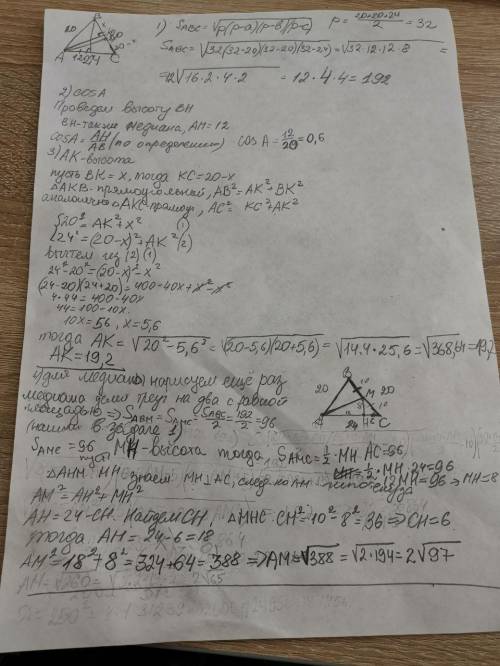 1) S_ABC = √p(p-a)(p-b)(p-c) p = (20+20+24)/2 = 32
S_ABC = √32(32-20)(32-20)(32-24) = √32·12·12·8 =
12√16·2·4·2 = 12·4·4 = 192
2) cos A
Проведем высоту BH
BH-также медиана, AH = 12
cos A = AH/AB (по определению) cos A = 12/20 = 0,6
3) AK-высота
пусть BK = x, тогда KC = 20-x
ΔAKB-прямоугольный, AB² = AK² + BK²
аналогично ΔAKC-прямоуг, AC² = KC² + AK²
20² = AK² + x² (1)
24² = (20-x)² + AK² (2)
вычтем из (2) (1)
24² - 20² = (20-x)² - x²
(24-20)(24+20) = 400-40x+x²-x²
4·44 = 400-40x
44 = 100-10x
10x = 56, x = 5,6
тогда AK = √20²-5,6² = √(20-5,6)(20+5,6) = √14,4·25,6 = √368,64 = 19,2
AK = 19,2
4) для медианы нарисуем ещё раз
медиана делит треуг на два с равной
площадью => S_ABM = S_AMC = S_ABC/2 = 192/2 = 96
(нашли в задаче 1)
S_AMC = 96 пусть MH-высота тогда S_AMC = 1/2·MH·AC = 96
1/2·MH·24 = 96
ΔAHM MH знаем MH⊥AC, след-но AM гипотенуза 12MH = 96 => MH = 8
AM² = AH² + MH²
AH = 24-CH. Найдем CH, ΔMHC CH² = 10² - 8² = 36 => CH = 6
тогда AH = 24-6 = 18
AM² = 18² + 8² = 324 + 64 = 388 => AM = √388 = √2·194 = 2√97